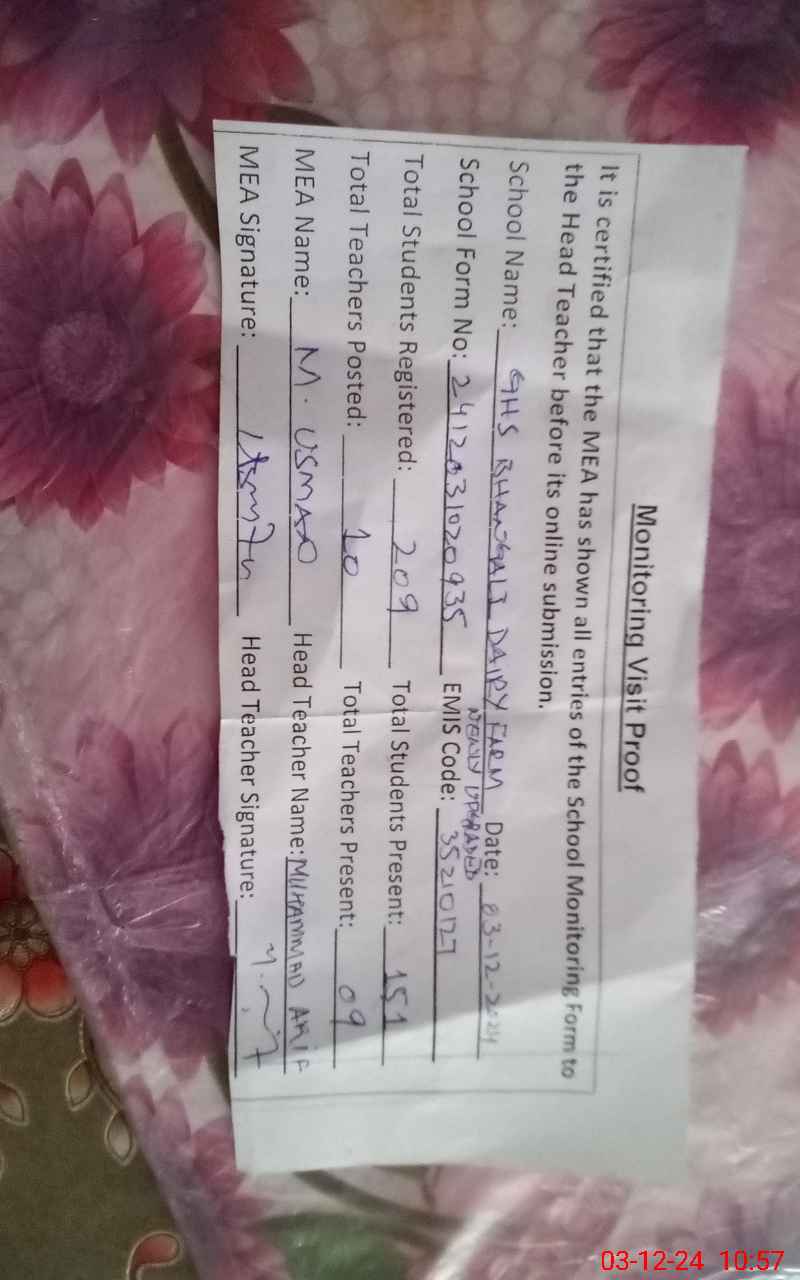 Monitoring Visit Proof
It is certified that the MEA has shown all entries of the School Monitoring Form to
the Head Teacher before its online submission.
School Name: GHS BHANGALI DAIRY FARM Date: 03-12-2024
NEWLY UPGRADED
School Form No: 2412031020935 EMIS Code: 35210127
Total Students Registered: 209 Total Students Present: 151
Total Teachers Posted: 10 Total Teachers Present: 09
MEA Name: M. USMAN Head Teacher Name: MUHAMMAD ARIF
MEA Signature: Head Teacher Signature:
03-12-24 10:57